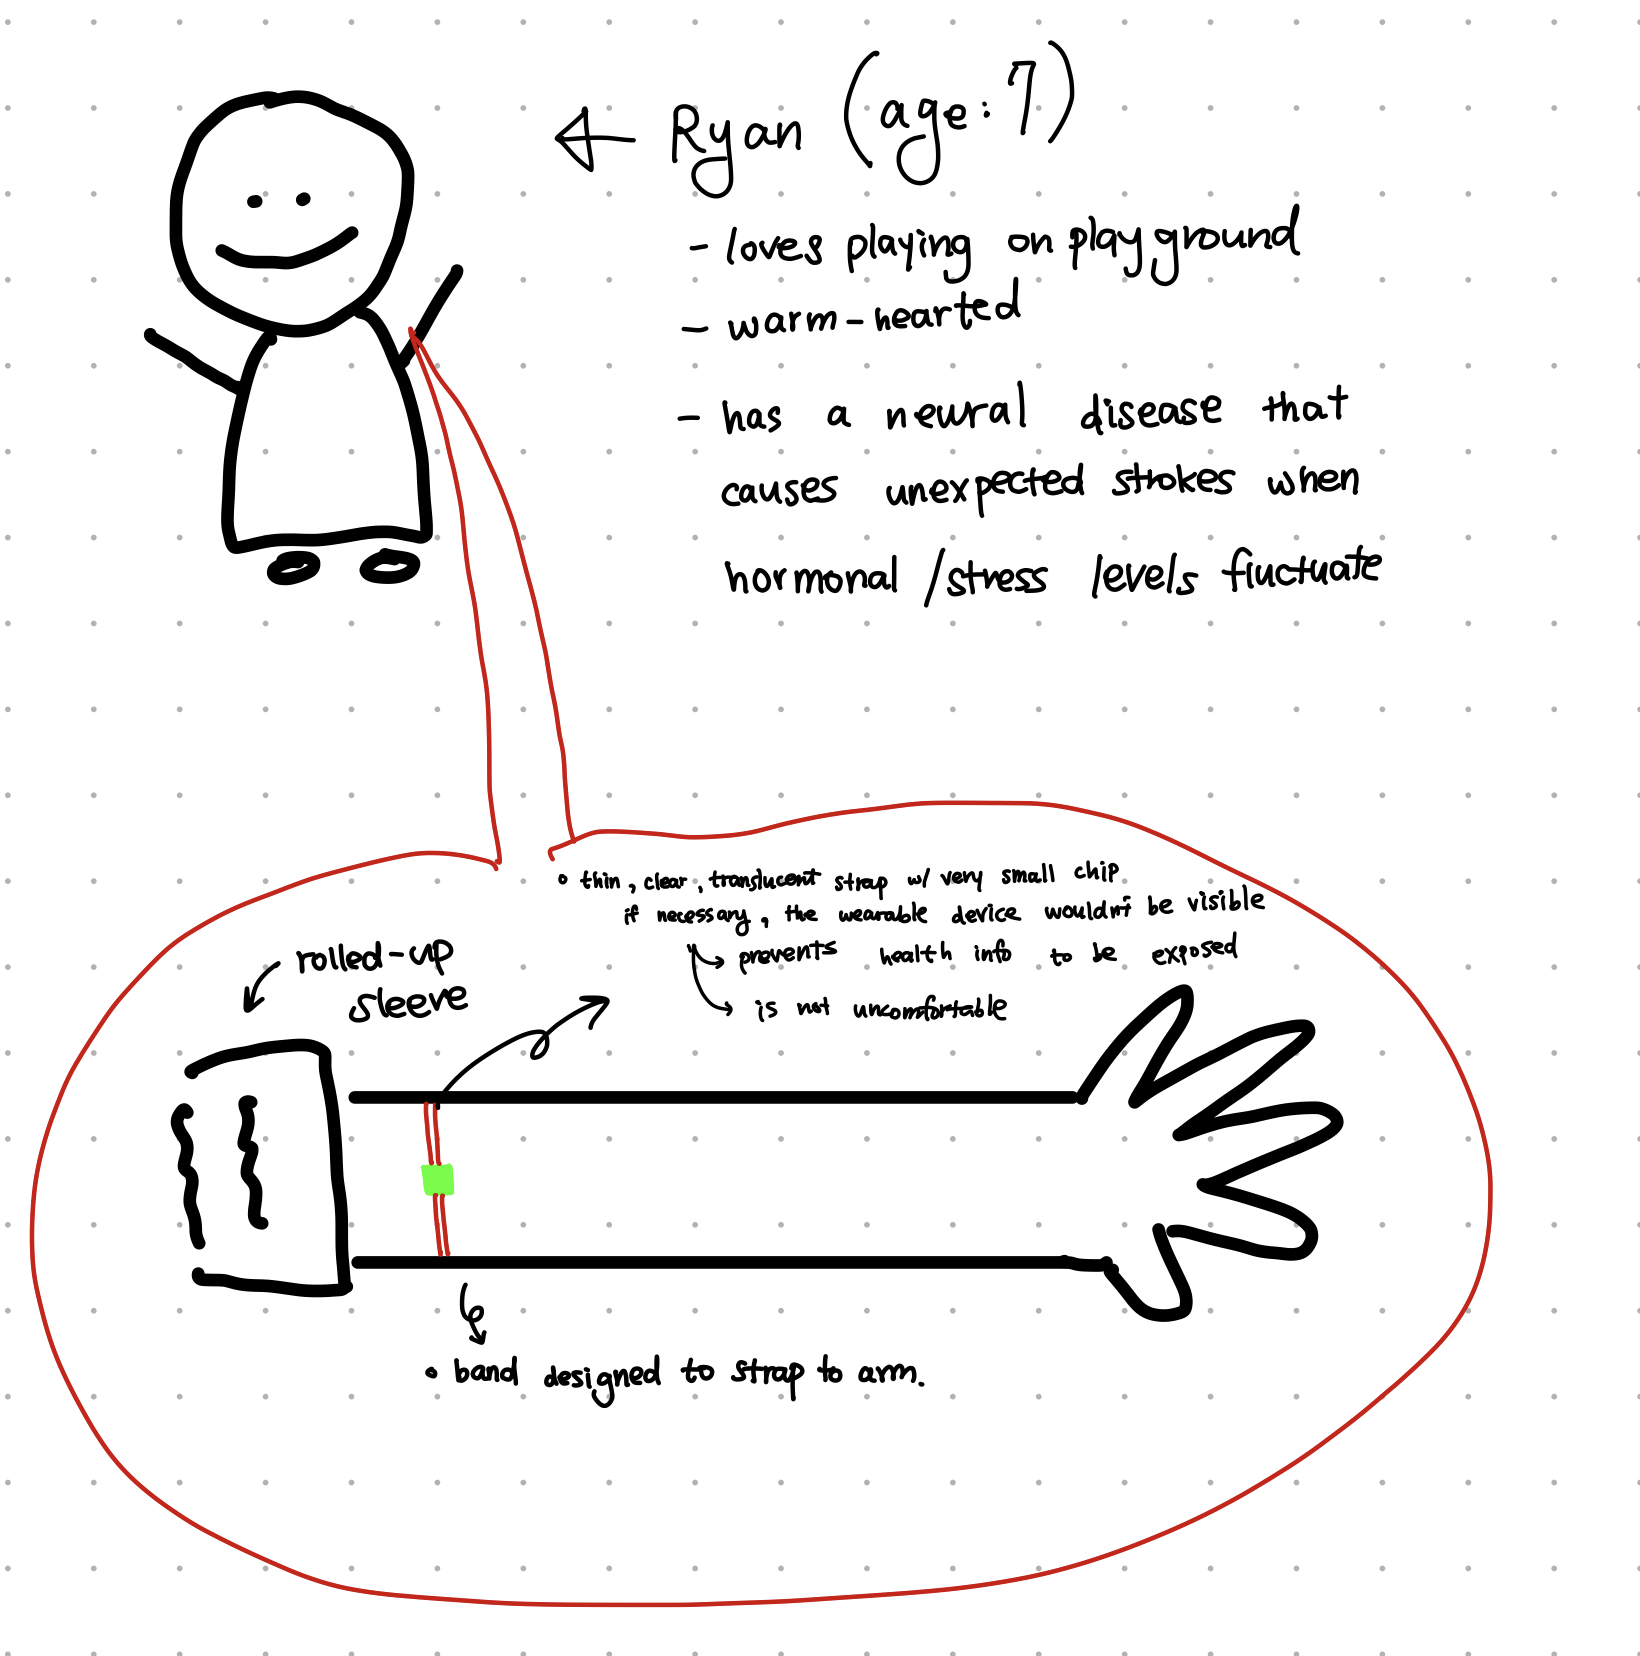 Ryan (age: 7)
- loves playing on playground
- warm-hearted
- has a neural disease that
causes unexpected strokes when
hormonal /stress levels fluctuate
• thin, clear, translucent strap w/ very small chip
if necessary, the wearable device wouldn't be visible
prevents health info to be exposed
is not uncomfortable
rolled-up
sleeve
• band designed to strap to arm.